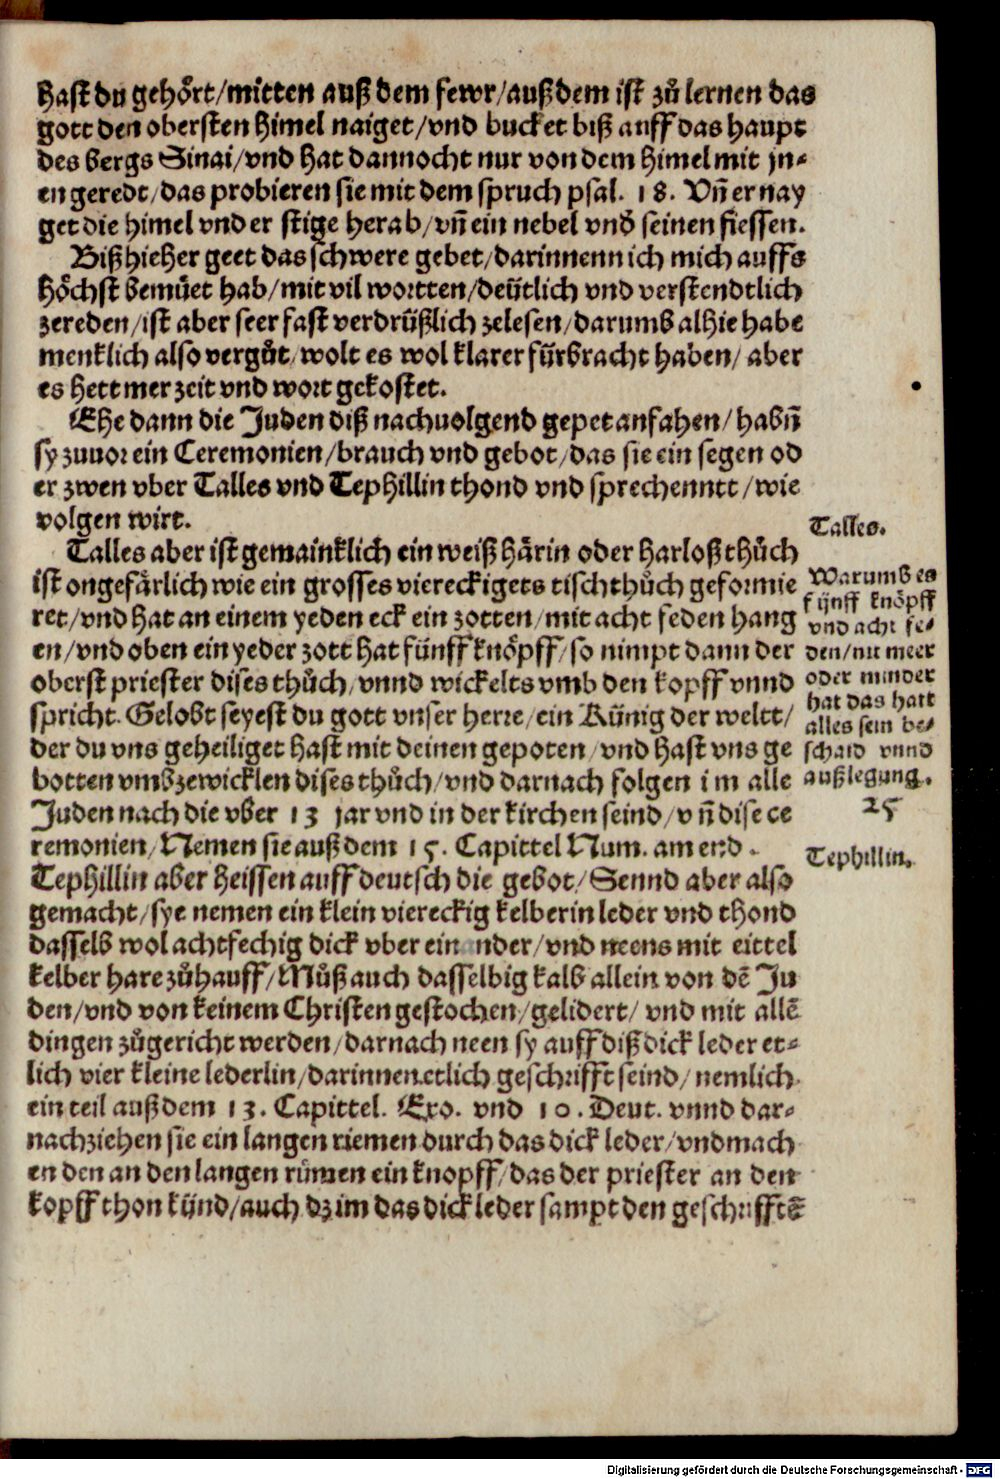 hast du gehoͤrt/mitten auß dem fewr/auß dem ist zuͦ lernen das
gott den obersten himel naiget/vnd bucket biß auff das haupt
des bergs Sinai/vnd hat dannocht nur von dem himel mit jn-
en geredt/das probieren sie mit dem spruch psal. 18. Vñ er nay
get die himel vnd er stige herab/vñ ein nebel vnd̕ seinen fiessen.
Biß hieher geet das schwere gebet/darinnenn ich mich auffs
hoͤchst bemuͤet hab/mit vil wortten/deuͤtlich vnd verstendtlich
zereden/ist aber seer fast verdruͤßlich zelesen/darumb alhie habe
menklich also verguͦt/wolt es wol klarer fuͤrbracht haben/aber
es hett mer zeit vnd wort gekostet.
Ehe dann die Juden diß nachuolgend gepet anfahen/habñ
sy zuuor ein Ceremonien/brauch vnd gebot/das sie ein segen od
er zwen vber Talles vnd Tephillin thond vnd sprechenntt/wie
volgen wirt.
Talles.
Talles aber ist gemainklich ein weiß haͤrin oder harloß thuͦch
ist ongefaͤrlich wie ein grosses viereckigets tischthuͦch geformie
ret/vnd hat an einem yeden eck ein zotten/mit acht feden hang
en/vnd oben ein yeder zott hat fuͤnff knoͤpff/so nimpt dann der
oberst priester dises thuͦch/vnnd wickelts vmb den kopff vnnd
spricht. Gelobt seyest du gott vnser herre/ein Kuͤnig der weltt/
der du vns geheiliget hast mit deinen gepoten/vnd hast vns ge
botten vmbzewicklen dises thuͦch/vnd darnach folgen im alle
Juden nach die vber 13 jar vnd in der kirchen seind/vñ dise ce
remonien/Nemen sie auß dem 15. Capittel Num. am end.
Warumb es
fuͤnff knoͤpff
vnd acht fe-
den/nit meer
oder minder
hat das hatt
alles sein be-
schaid vnnd
außlegung.
25
Tephillin.
Tephillin aber heissen auff deutsch die gebot/Sennd aber also
gemacht/sye nemen ein klein viereckig kelberin leder vnd thond
dasselb wol achtfechig dick vber einander/vnd neens mit eittel
kelber hare zuͦhauff/Muͦß auch dasselbig kalb allein von dē Ju
den/vnd von keinem Christen gestochen/gelidert/vnd mit allē
dingen zuͦgericht werden/darnach neen sy auff diß dick leder et-
lich vier kleine lederlin/darinnen etlich geschrifft seind/nemlich
ein teil auß dem 13. Capittel. Exo. vnd 10. Deut. vnnd dar-
nachziehen sie ein langen riemen durch das dick leder/vndmach
en den an den langen ruͤmen ein knopff/das der priester an den
kopff thon kuͤnd/auch dz im das dick leder sampt den geschrifftē
Digitalisierung gefördert durch die Deutsche Forschungsgemeinschaft - DFG